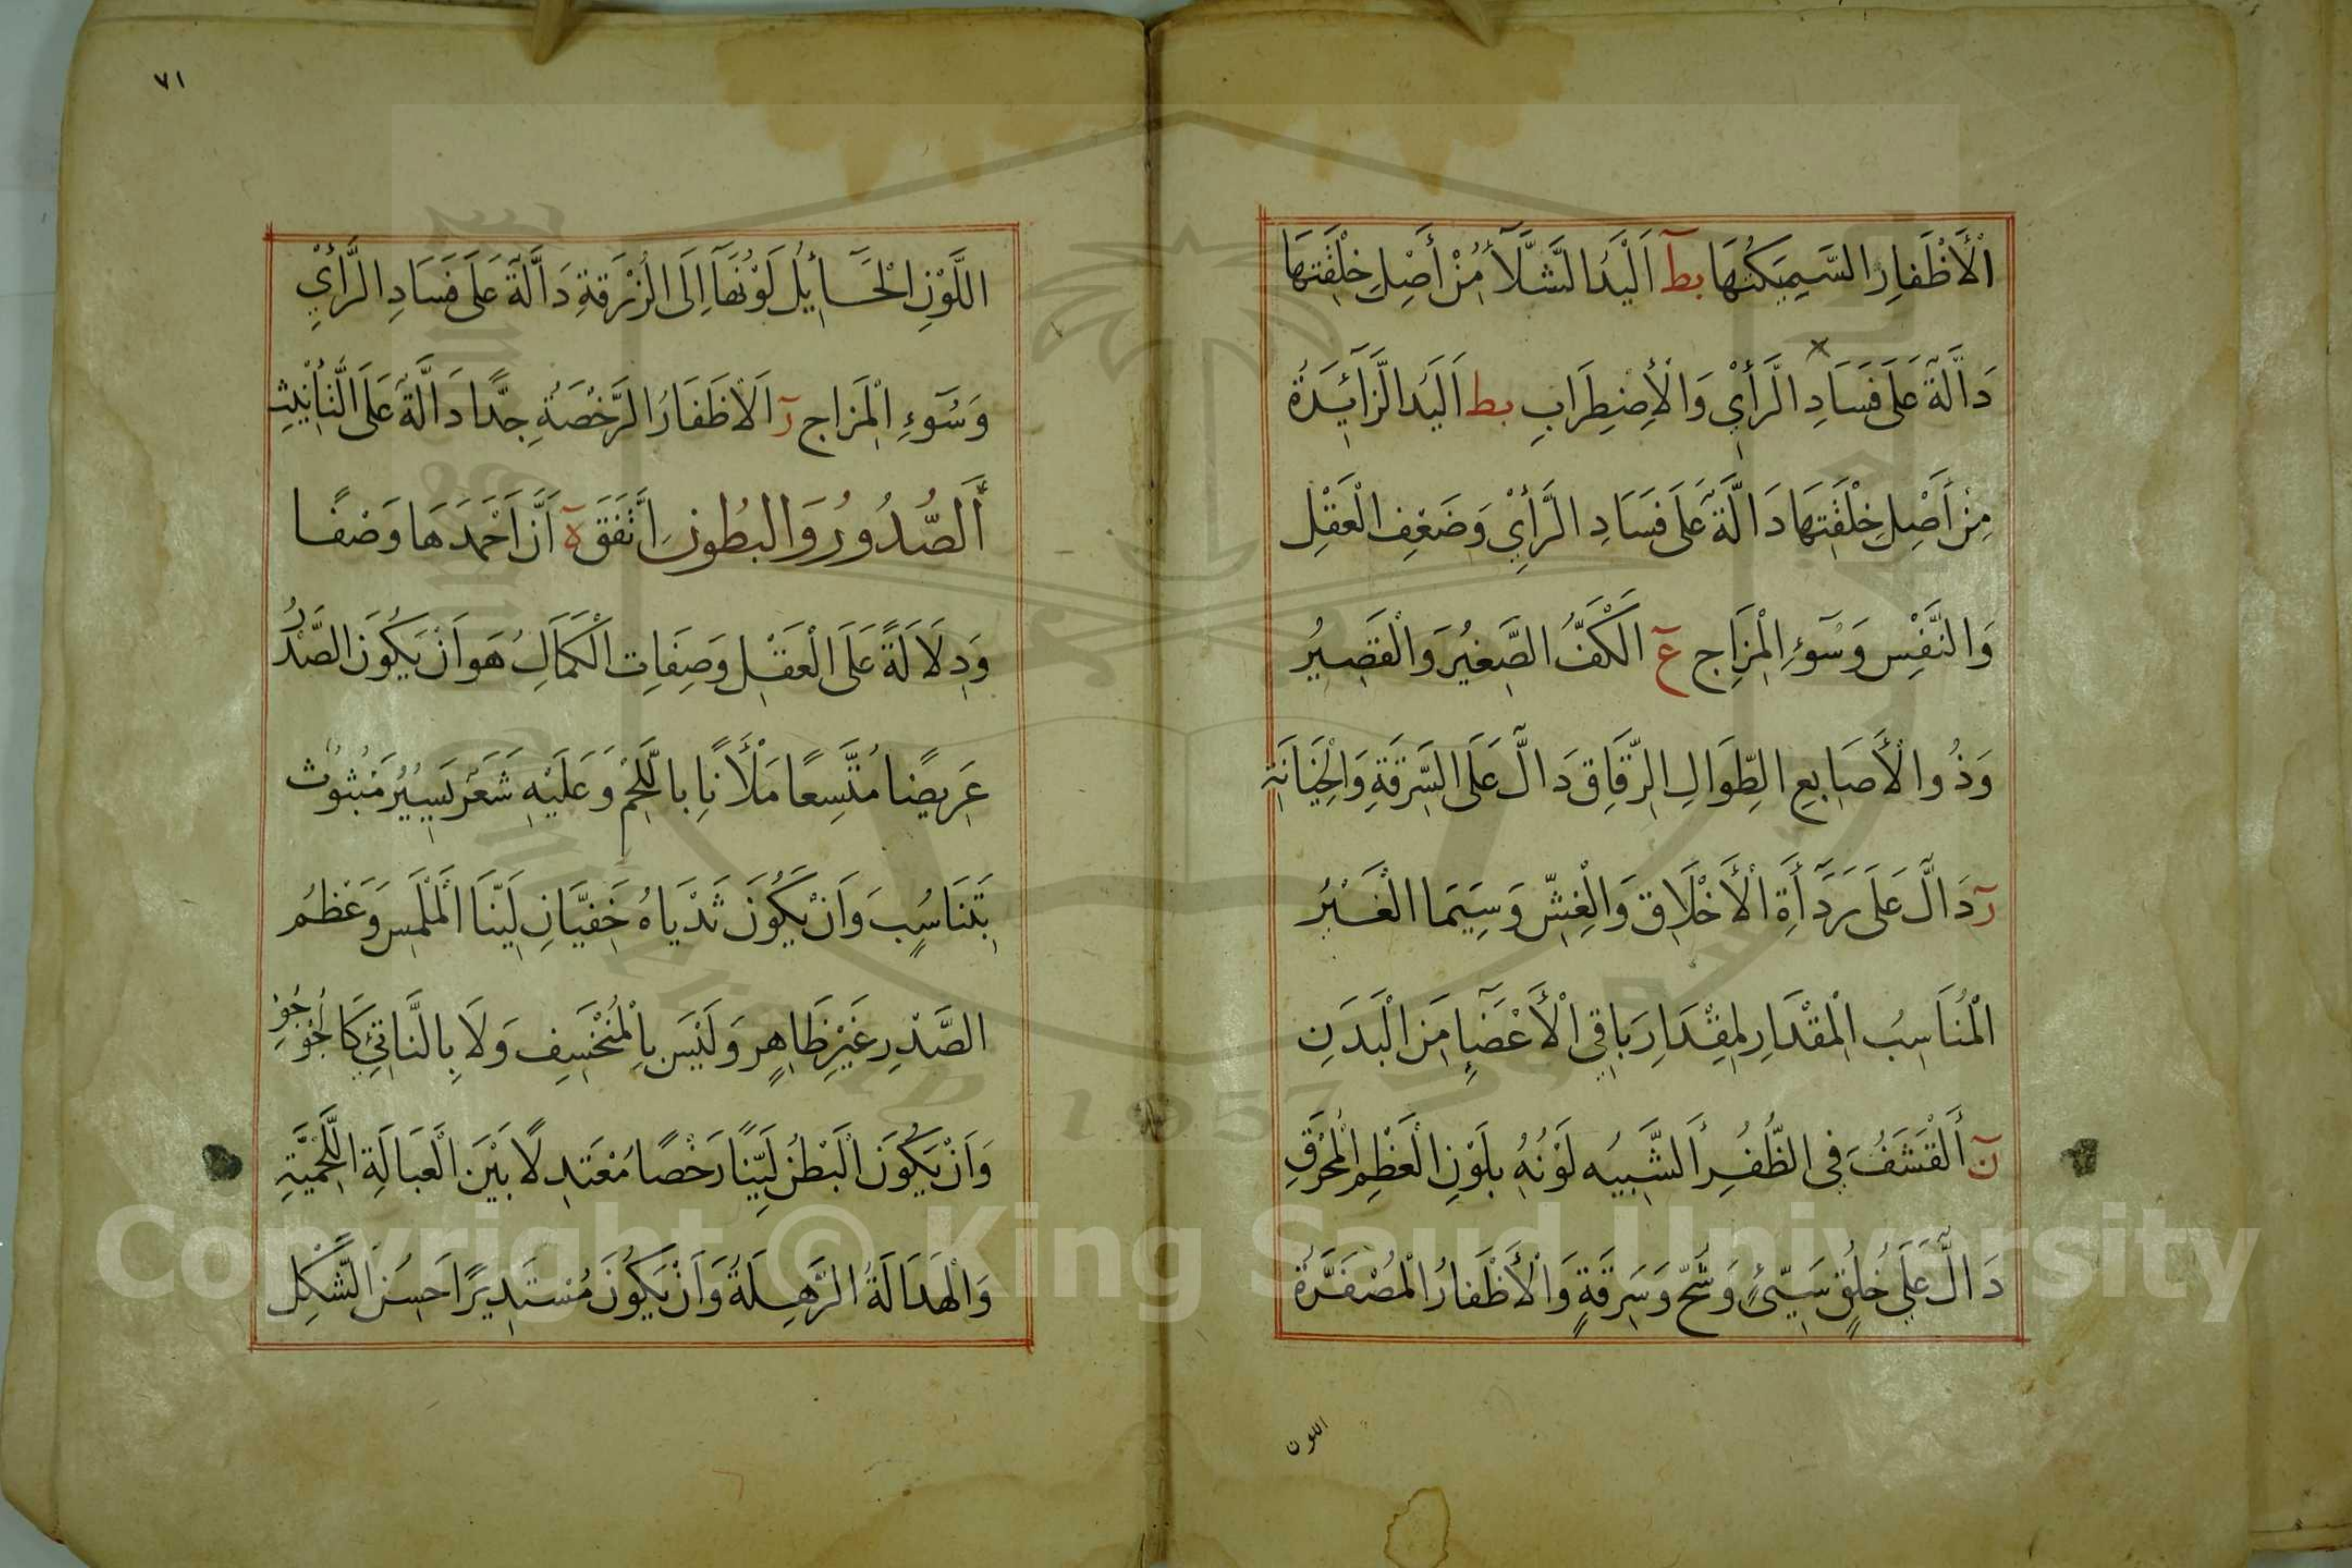 الْأَظْفَارِ السَّمِيكَتِهَا بط اَلْيَدُ الشَّلَّآءُ مِنْ أَصْلِ خِلْقَتِهَا
دَالَّةٌ عَلَى فَسَادِ الرَّأْيِ وَالْإِضْطِرَابِ بط اَلْيَدُ الزَّائِدَةُ
مِنْ أَصْلِ خِلْقَتِهَا دَالَّةٌ عَلَى فَسَادِ الرَّأْيِ وَضَعْفِ الْعَقْلِ
وَالنَّفْسِ وَسُوٓءِ الْمِزَاجِ ع الْكَفُّ الصَّغِيرُ وَالْقَصِيرُ
وَذُو الْأَصَابِعِ الطِّوَالِ الرِّقَاقِ دَالٌّ عَلَى السَّرِقَةِ وَالْخِيَانَةِ
ر دَالٌّ عَلَى رَدَآءَةِ الْأَخْلَاقِ وَالْغِشِّ وَسِيَمَا الْغَيْرُ
الْمُنَاسِبُ الْمِقْدَارِ لِمِقْدَارِ بَاقِي الْأَعْضَآءِ مِنَ الْبَدَنِ
ن أَلْقَشَفُ فِي الظُّفُرِ أَلشَّبِيهِ لَوْنُهُ بِلَوْنِ الْعَظْمِ الْمُحْرَقِ
دَالٌّ عَلَى خُلُقٍ سَيِّئٍ وَشُحٍّ وَسَرِقَةٍ وَالْأَظْفَارُ الْمُصْفَرَّةُ
اللون
٧١
اللَّوْنِ الْحَآئِلُ لَوْنُهَا اِلَى الزُّرْقَةِ دَآلَّةٌ عَلَى فَسَادِ الرَّأْيِ
وَسُوٓءِ الْمَزَاجِ ر اَلْأَظْفَارُ الرَّخْصَةِ جِدًّا دَالَّةٌ عَلَى التَّأْنِيثِ
أَلصُّدُورُ وَالبُطُونُ اِتَّفَقَ ه اَنَّ اَحْمَدَهَا وَصْفًا
وَدِلَالَةً عَلَى الْعَقْلِ وَصِفَاتِ الْكَمَالِ هَو اَنْ يَكُونَ الصَّدْرُ
عَرِيضًا مُتَّسِعًا مَلْأَنًا بِاللَّحْمِ وَعَلَيْهِ شَعَرٌ يَسِيرٌ مَبْثُوثٌ
بِتَنَاسُبٍ وَاَنْ يَكُونَ ثَدْيَاهُ خَفِيَّانِ لَيِّنَا الْمَلْمَسِ وَعَظْمُ
الصَّدْرِ غَيْرُ ظَاهِرٍ وَلَيْسَ بِالْمُنْخَسِفِ وَلَا بِالنَّاتِئِ كَالْجُؤْجُؤِ
وَاَنْ يَكُونَ الْبَطْنُ لَيِّنًا رَخْصًا مُعْتَدِلًا بَيْنَ الْعَبَالَةِ اللَّحْمِيَّةِ
وَالْهَدَالَةُ الرَّهِلَةُ وَاَنْ يَكُونَ مُسْتَدِيرًا حَسَنَ الشَّكْلِ
Copyright © King Saud University
1957